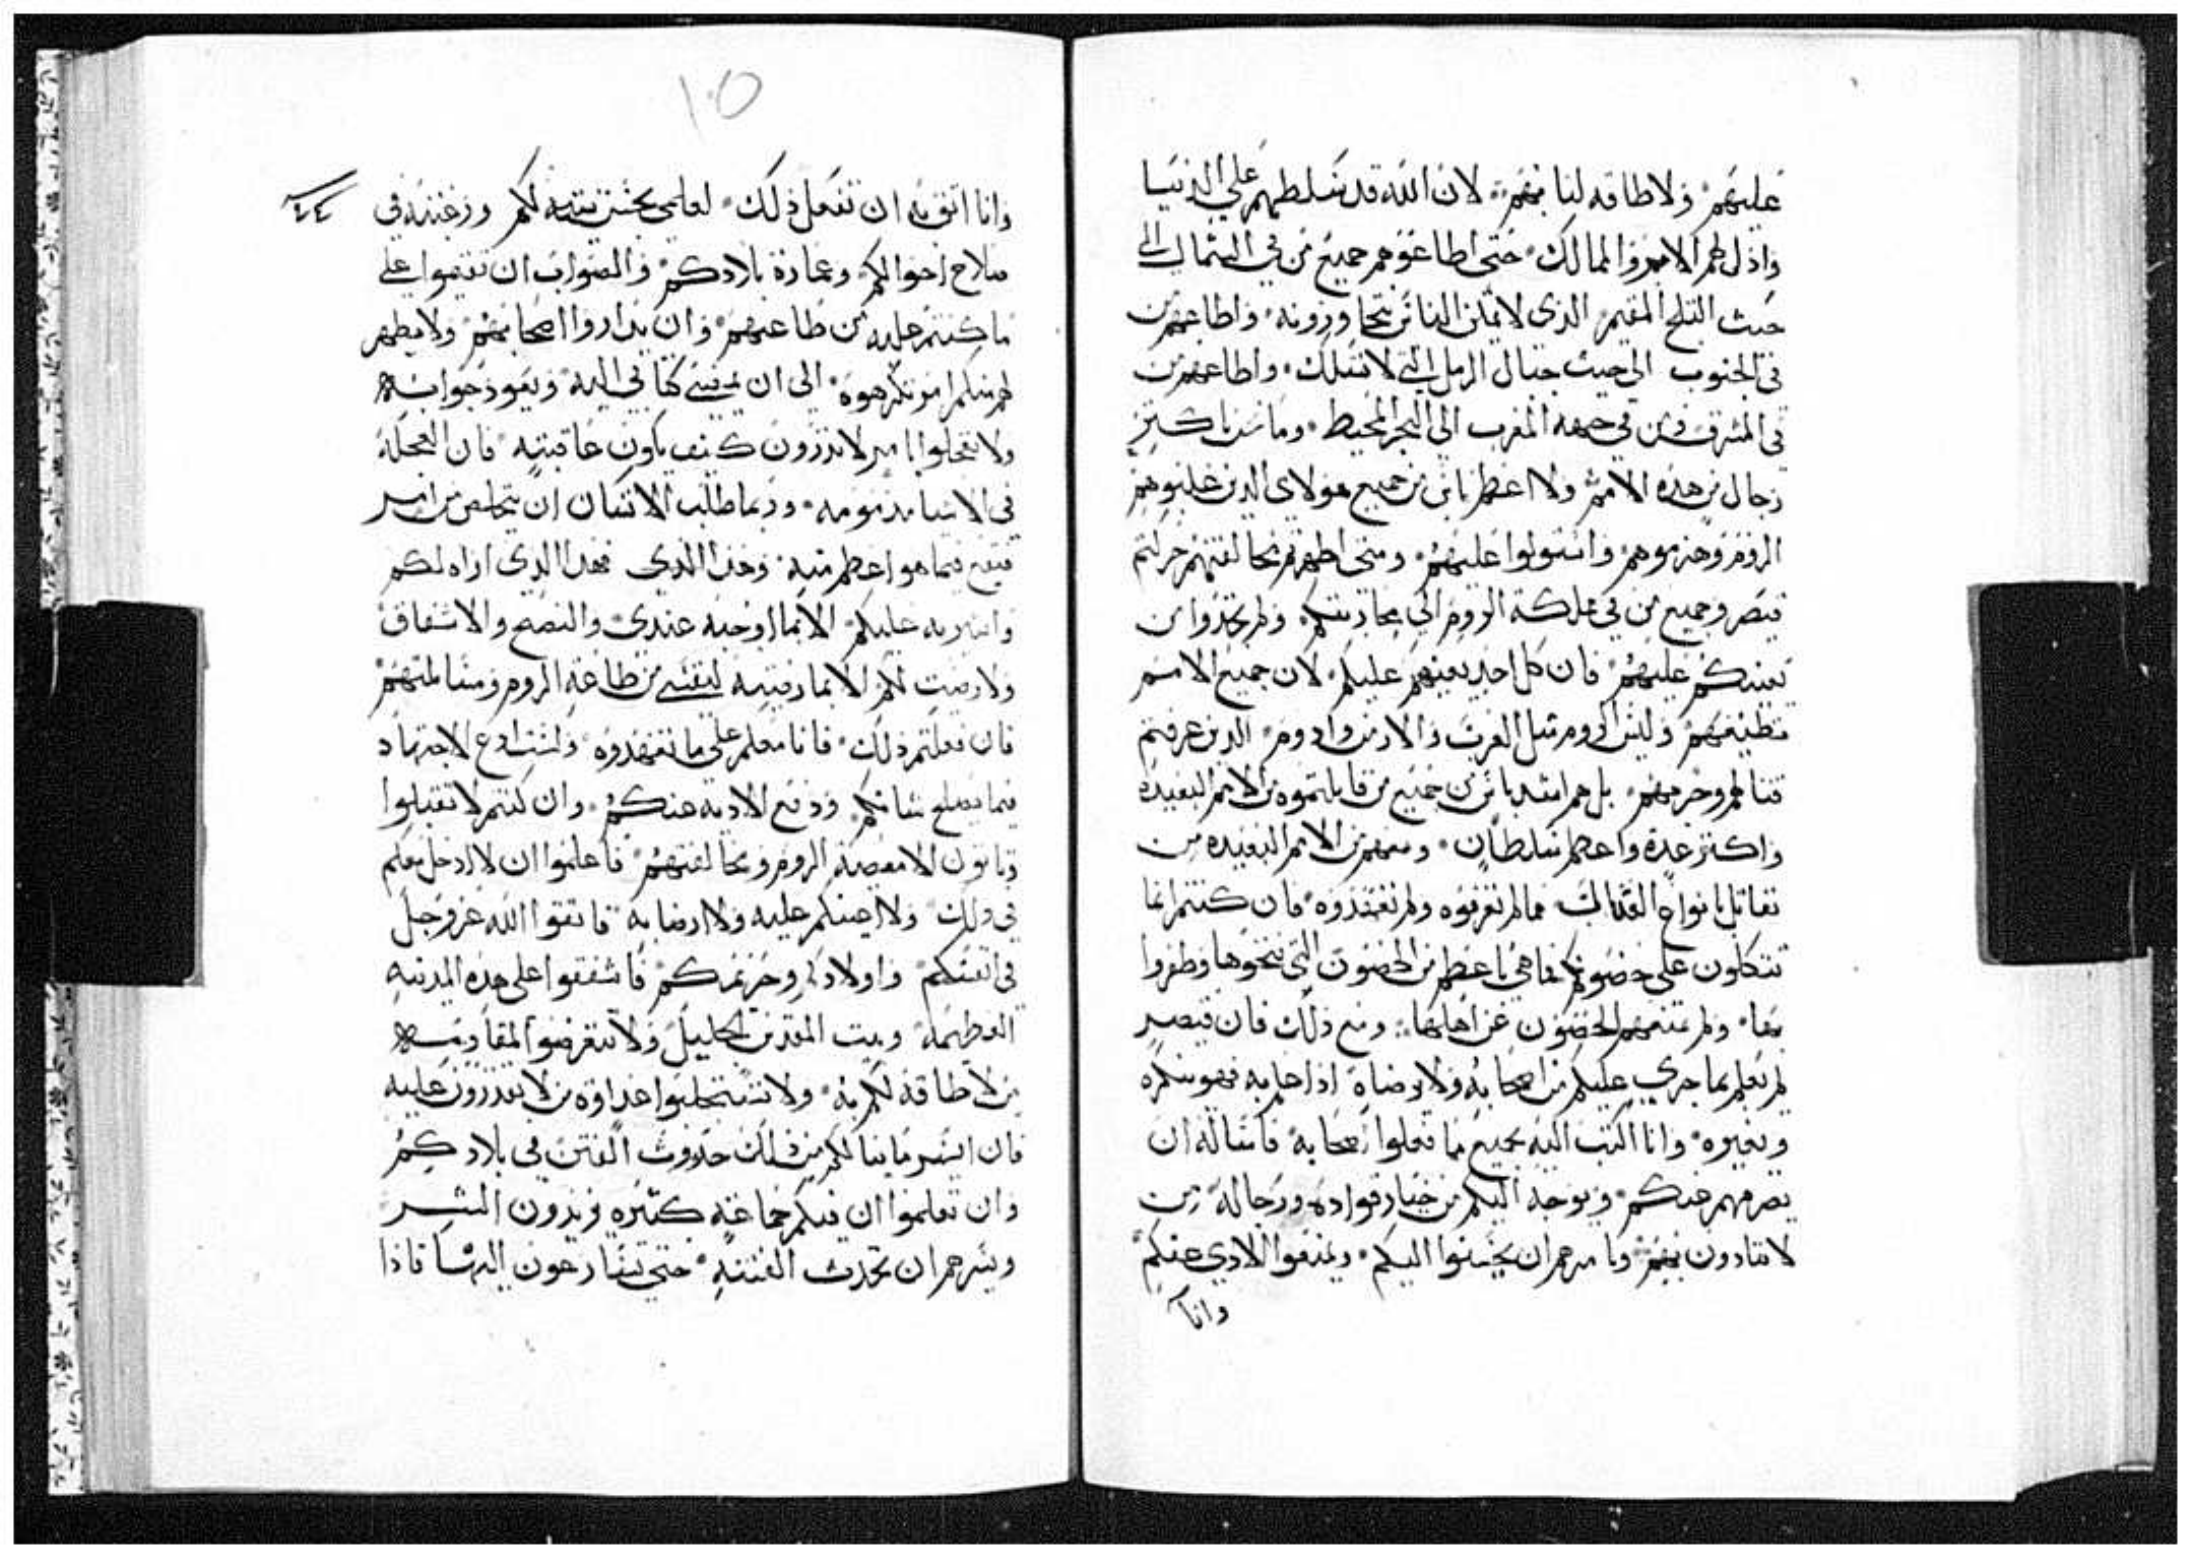 عليهم ولا طاقه لنا بهم لان الله قد سلطهم علي الدنيا
واذل لهم الامم والممالك حتى اطاعوهم جميع من في الشمال الى
حيث الثلج المقيم الذي لا يمكن الناس يتجاوزونه واطاعهم من
في الجنوب الى حيث جبال الرمل التي لا تسلك واطاعهم من
في المشرق ومن في جهه المغرب الى البحر المحيط وما نحن باكثر
رجال من هذه الامم ولا اعظم باس من جميع هولاى الذين غلبوهم
الروم وهزموهم واستولوا عليهم ومتى اظهرتم مخالفتهم حركتم
قيصر وجميع من في مملكة الروم الى محاربتكم ولم تجدوا من
يعينكم عليهم فان كل احد يعينهم عليكم لان جميع الامم
تطيعهم وليس الروم مثل العرب والارمن وادوم الذين عرفتم
قتالهم وحربهم بل هم اشد باس من جميع من قابلتموه من الامم البعيده
واكثر عدة واعظم سلطان ومعهم من الامم البعيده من
تقاتل بانواع القتال مما لم تعرفوه ولم تعتقدوه فان كنتم انما
تتكلون على حصونكم فما هي باعظم من الحصون التي فتحوها وظفروا
بها ولم تمنعهم الحصون عن اهلها ومع ذلك فان قيصر
لم يعلم بما جرى عليكم من اصحابه ولا يرضاه اذا علم به فهو ينكره
ويغيره وانا اكتب اليه بجميع ما فعلوا اصحابه فاساله ان
يصرفهم عنكم ويوجه اليكم من خيار قواده ورجاله من
لا تتادون بهم ويامرهم ان يحسنوا اليكم ويمنعوا الادي عنكم
وانا
١٠٥
وانا اثق به ان تفعل ذلك لعلمي بحسن نيته لكم ورغبته في
صلاح احوالكم وعمارة بلادكم والصواب ان تقيموا علي
ما كنتم عليه من طاعتهم وان تداروا اصحابهم ولا يظهر
لهم منكم امر تكرهوه الى ان يمضي كتابي اليه ويعود جوابه
ولا تعجلوا بامر لا تدرون كيف يكون عاقبته فان العجلة
في الاشيا مذمومه وربما طلب الانسان ان يتخلص من امر
فيقع فيما هو اعظم منه وهذا الذي فهذا الذي اراه لكم
واشير به عليكم الا بما اوجبه عندي والنصح والاشفاق
ولا رضيت لكم الا بما رضيته لنفسي من طاعة الروم ومسالمتهم
فان فعلتم ذلك فانا معكم على ما تعتقدوه ولست ادع الاجتهاد
فيما يصلح شانكم ودفع الاديه عنكم وان كنتم لا تقبلوا
وتابون الا معصية الروم ومخالفتهم فاعلموا ان لا ادخل معكم
في ذلك ولا اعينكم عليه ولا ارضا به فاتقوا الله عز وجل
في انفسكم واولادكم وحريمكم فاشفقوا على هذه المدينه
العظيمة وبيت المقدس الجليل ولا تتعرضوا لمقاومة
من لا طاقة لكم به ولا تستجلبوا عداوة من لا تقدرون عليه
فان ايسر ما ينالكم من ذلك حدوث الفتن في بلادكم
وان تعلموا ان فيكم جماعة كثيره يريدون الشر
ويسرهم ان تحدث الفتنه حتى يسارعون اليها فاذا